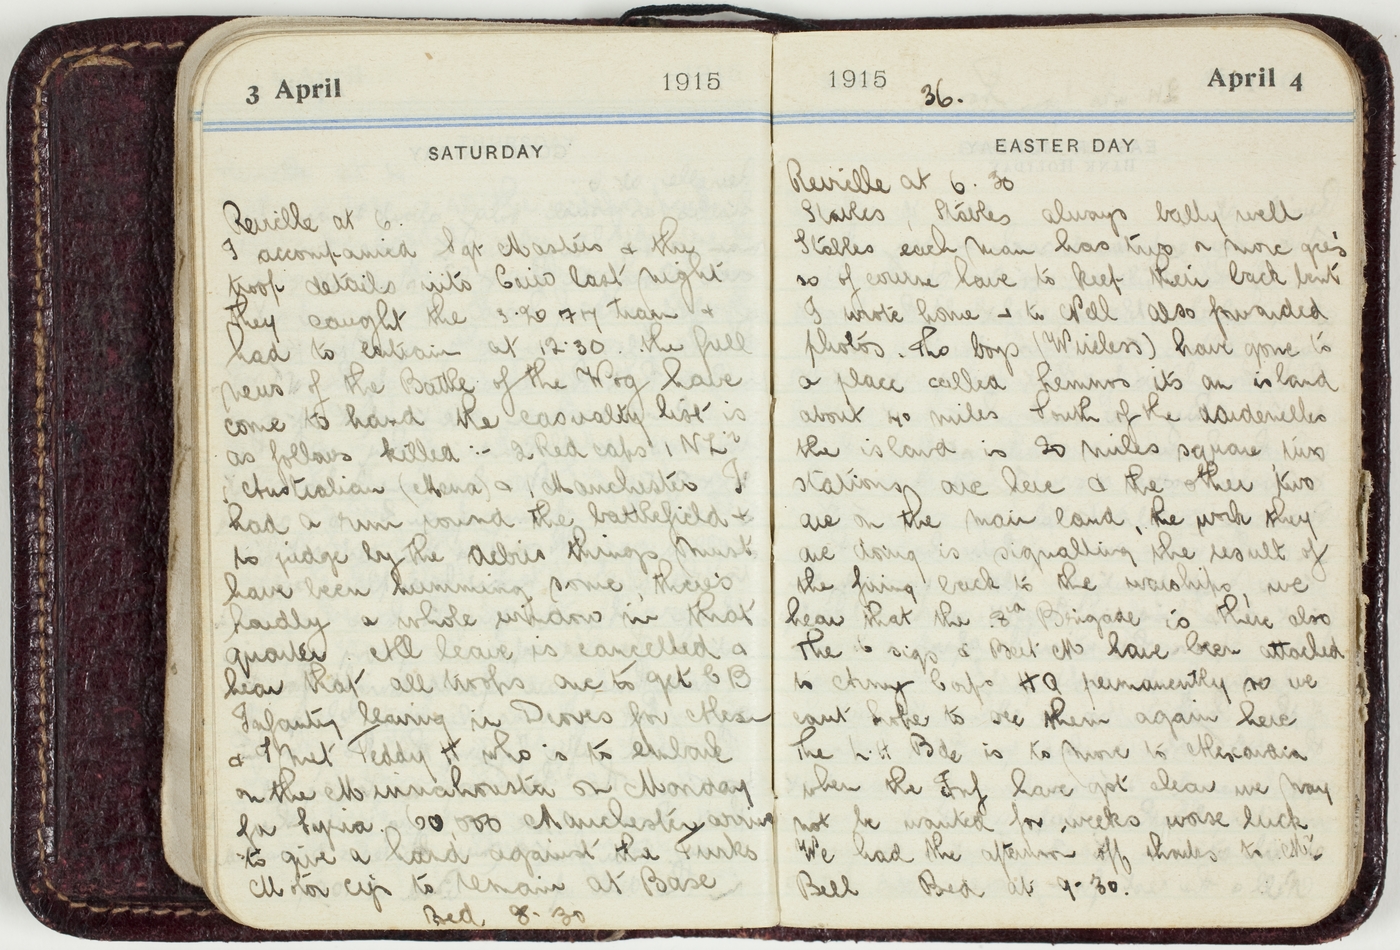 3 April 1915
SATURDAY
Reville at 6.
I accompanied Sgt Masters & the
troop details into Cairo last night
they caught the train &
had to entrain at 12.30. the full
news of the Battle of the Wog have
come to hand the casualty list is
as follows killed :- 2 Red caps 1 NZ
1 Australian (Mena) & 1 Manchester I
had a run round the battlefield &
to judge by the debris things must
have been humming some, there's
hardly a whole window in that
quarter. All leave is cancelled &
hear that all troops are to get CB
Infantry leaving in Droves for Alex
& I met Teddy H who is to embark
on the Minnahousta on Monday
for Syria. 60,000 Manchesters arrive
to give a hand against the Turks
Motor cyc to remain at Base
Bed 8.30
1915 April 4
36.
EASTER DAY
Reville at 6.30
Stables, Stables always bally well
Stables each man has two or more gees
so of course have to keep their back bent
I wrote home & to Nell also forwarded
photos. The boys (Wireless) have gone to
a place called Lemnos its an island
about 40 miles South of the dardenelles
the island is 20 miles square, two
stations are here & the other two
are on the main land, the work they
are doing is signalling the result of
the firing back to the warships, we
hear that the 3rd Brigade is there also
The sigs & Beet M have been attached
to Army Corps HQ permanently so we
cant hope to see them again here
The L.H Bde is to move to Alexandria
when the Inf have got clear we may
not be wanted for weeks worse luck
We had the afternoon off thanks to
Bell Bed at 9.30.